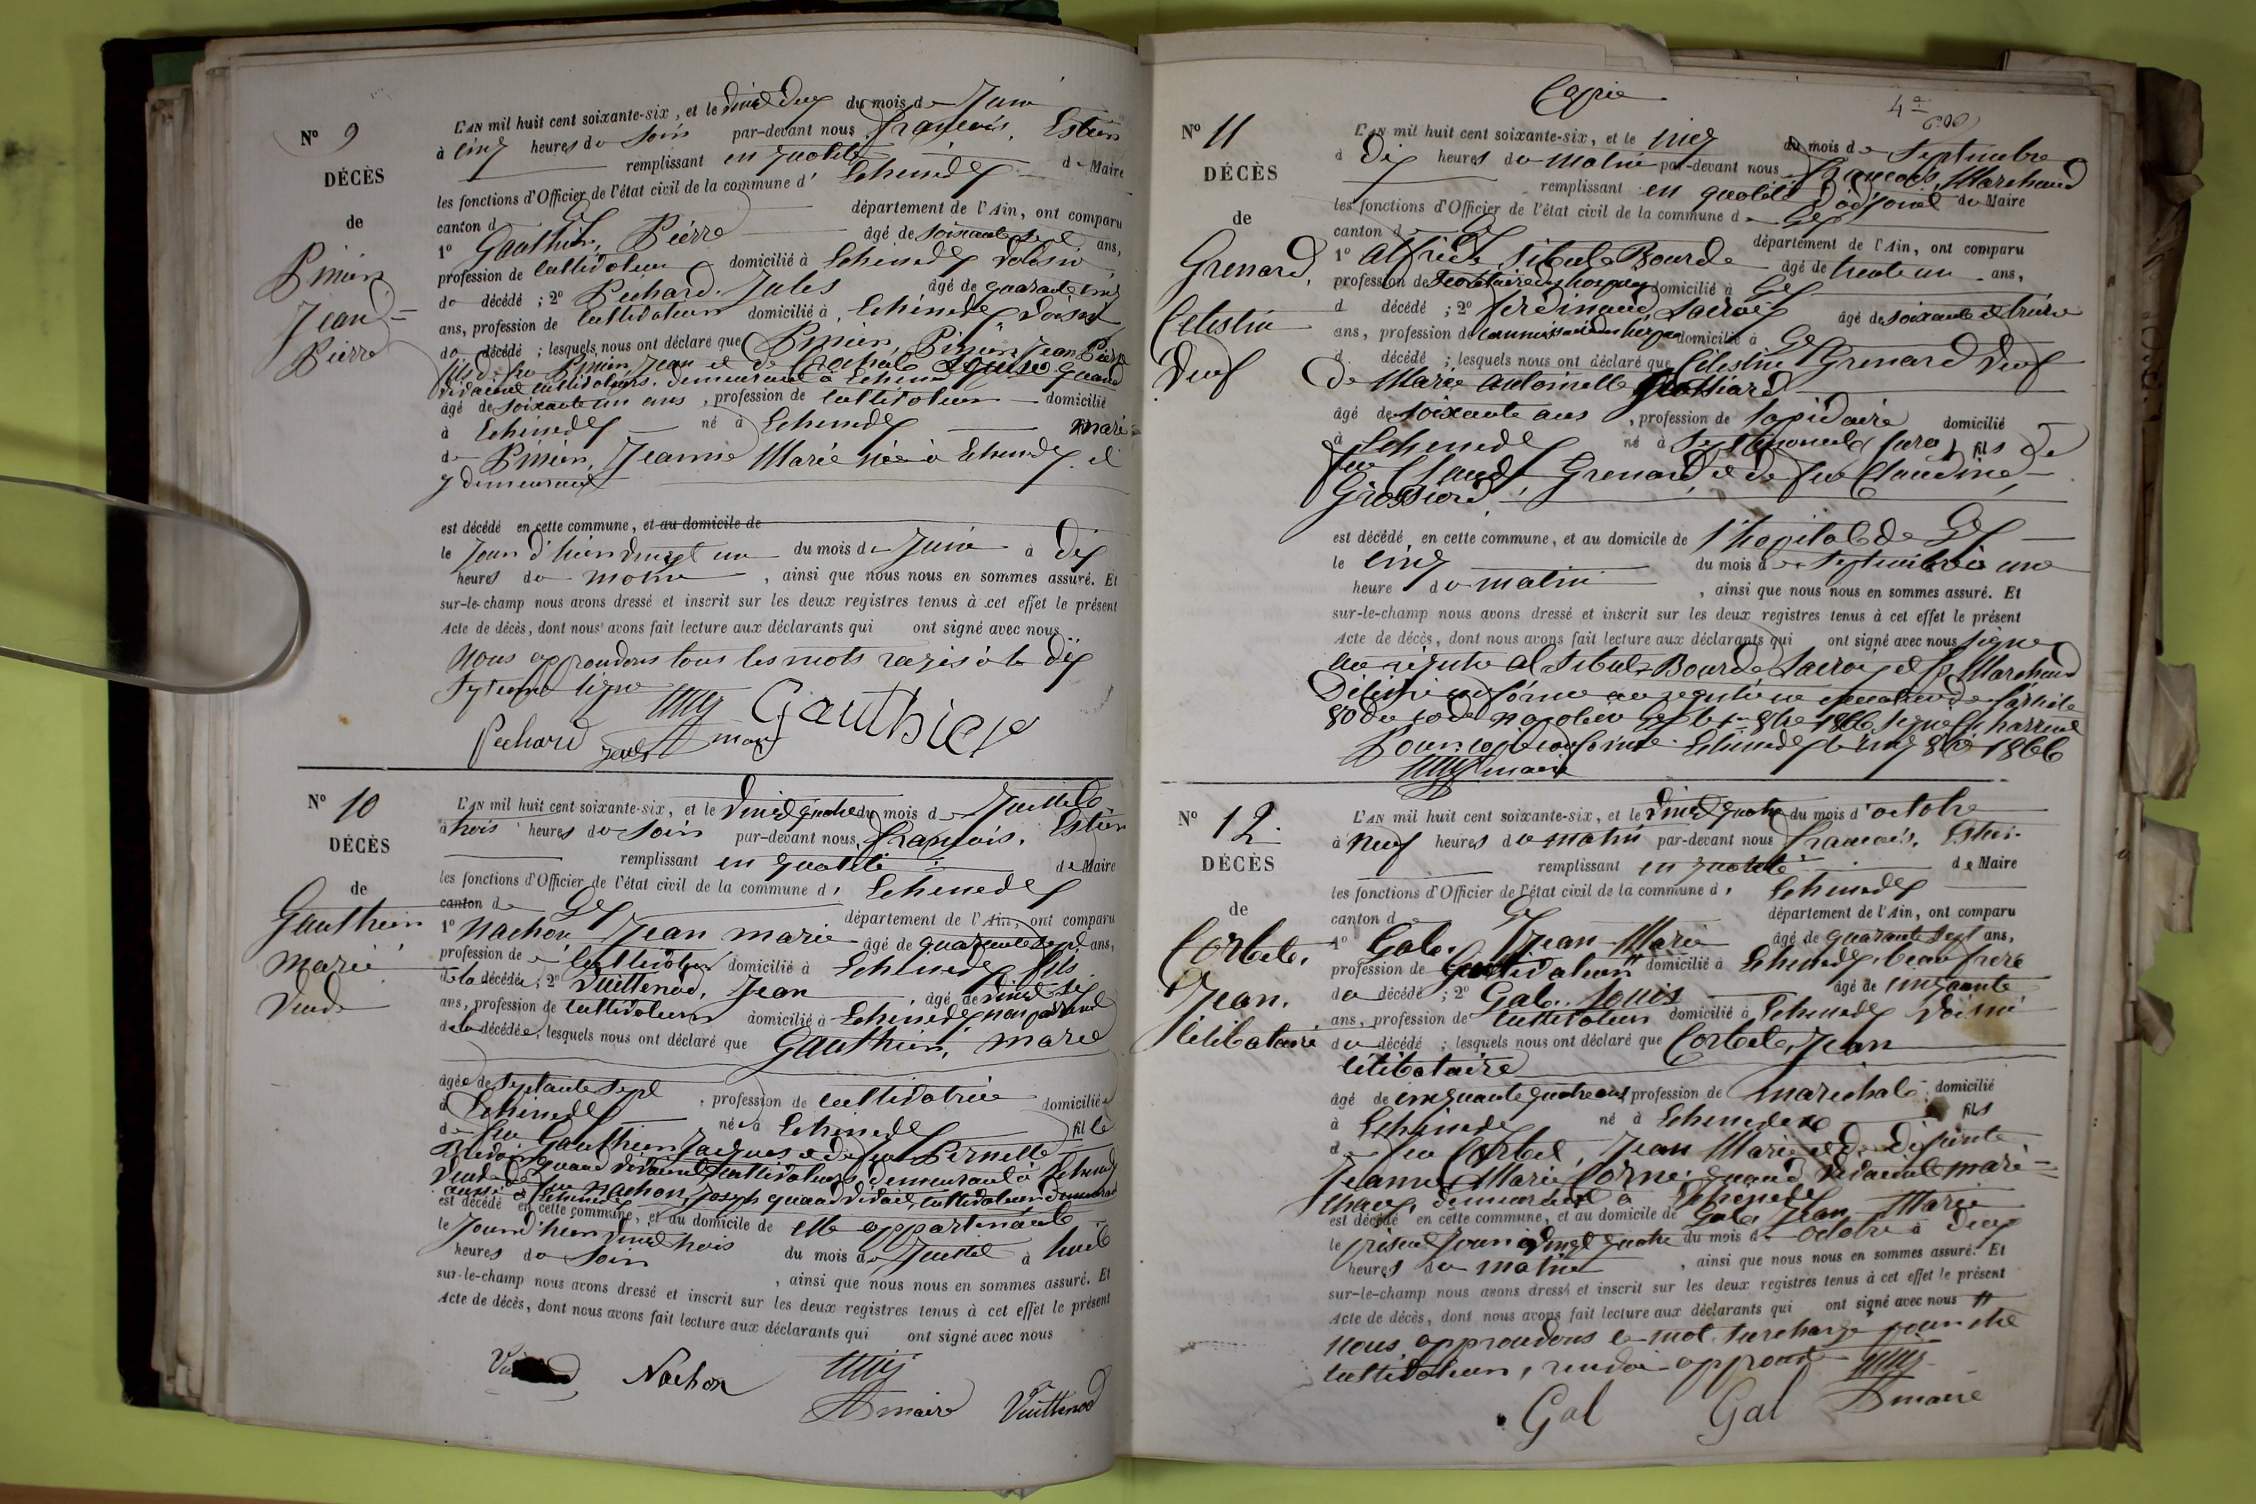 N° 9
DÉCÈS
de
Pinier
Jean
Pierre
L'AN mil huit cent soixante-six, et le vingt deux du mois de Juin
à cinq heures du soir par-devant nous François, Estier
remplissant en qualité de Maire
les fonctions d'Officier de l'état civil de la commune d' Echenedex
canton de Gex département de l'Ain, ont comparu
1° Gauthier, Pierre âgé de soixante sept ans,
profession de cultivateur domicilié à Echenedex voisin
du décédé ; 2° Pechard. Jules âgé de quarante cinq
ans, profession de cultivateur domicilié à Echenedex voisin
du décédé ; lesquels nous ont déclaré que Pinier, Jean Pierre
fils de feu Pinier Jean et de quand
vivaient cultivateurs, demeurant à
âgé de soixante un ans, profession de cultivateur domicilié
à Echenedex né à Echenedex mari
de Pinier, Jeanne Marie née à Echenedex et
y demeurant
est décédé en cette commune, et au domicile de
le Jour d'hier vingt un du mois de Juin à dix
heures du matin, ainsi que nous nous en sommes assuré. Et
sur-le-champ nous avons dressé et inscrit sur les deux registres tenus à cet effet le présent
Acte de décès, dont nous avons fait lecture aux déclarants qui ont signé avec nous
Nous approuvons tous les mots rayés à la dix
septieme ligne
Gauthier
Pechard Jules maire
N° 10
DÉCÈS
de
Gauthier
Marie
Veuve
L'AN mil huit cent soixante-six, et le vingt quatre du mois de Juillet
à trois heures du soir par-devant nous François. Estier
remplissant en qualité de Maire
les fonctions d'Officier de l'état civil de la commune d' Echenedex
canton de Gex département de l'Ain, ont comparu
1° Nachon Jean marie âgé de quarante sept ans,
profession de cultivateur domicilié à Echenedex fils
de la décédée ; 2° Vuittenod, Jean âgé de vingt six
ans, profession de cultivateur domicilié à Echenedex non parent
de la décédée, lesquels nous ont déclaré que Gauthier, marie
âgée de septante sept, profession de cultivatrice domiciliée
à Echenedex née à Echenedex fille
de feu Gauthier Jacques et de feu Pernette
quand vivaient cultivateurs, demeurant à
Veuve de feu Nachon, Joseph quand vivait, cultivateur demeurant
aussi à Echenedex
est décédé en cette commune, et au domicile de elle appartenante
le Jour d'hier vingt trois du mois de Juillet à huit
heures du soir, ainsi que nous nous en sommes assuré. Et
sur-le-champ nous avons dressé et inscrit sur les deux registres tenus à cet effet le présent
Acte de décès, dont nous avons fait lecture aux déclarants qui ont signé avec nous
Nachon maire Vuittenod
Copie
4e
N° 11
DÉCÈS
de
Grenard,
Célestin
Veuf
L'AN mil huit cent soixante-six, et le cinq du mois de Septembre
à dix heures du matin par-devant nous François, Marchand
remplissant en qualité d'adjoint du Maire
les fonctions d'Officier de l'état civil de la commune de Gex
canton de Gex département de l'Ain, ont comparu
1° Alfrède, Bourde âgé de trente un ans,
profession de Secrétaire domicilié à Gex
d décédé ; 2° Ferdinand, Lacroix âgé de soixante et treize
ans, profession de domicilié à Gex
d décédé ; lesquels nous ont déclaré que Célestin Grenard Veuf
de Marie Antoinette
âgé de soixante ans, profession de lapidaire domicilié
à Echenedex né à Septmoncel (Jura) fils de
feu Claude Grenard, et de feu Claudine,
Grossiord
est décédé en cette commune, et au domicile de l'hopital de Gex
le cinq du mois de Septembre à une
heure du matin, ainsi que nous nous en sommes assuré. Et
sur-le-champ nous avons dressé et inscrit sur les deux registres tenus à cet effet le présent
Acte de décès, dont nous avons fait lecture aux déclarants qui ont signé avec nous signé
au registre Al Bourde, Lacroix et F. Marchand
Délivré conforme au registre en exécution de l'article
80 du code Napoléon Gex le 1866 signé
Pour copie conforme Echenedex le cinq 1866
maire
N° 12
DÉCÈS
de
Corbet,
Jean.
Célibataire
L'AN mil huit cent soixante-six, et le vingt quatre du mois d'octobre
à neuf heures du matin par-devant nous François, Estier
remplissant en qualité de Maire
les fonctions d'Officier de l'état civil de la commune d' Echenedex
canton de Gex département de l'Ain, ont comparu
1° Gal, Jean Marie âgé de quarante sept ans,
profession de cultivateur domicilié à Echenedex beau frère
du décédé ; 2° Gal, Louis âgé de cinquante
ans, profession de cultivateur domicilié à Echenedex voisin
du décédé ; lesquels nous ont déclaré que Corbet, Jean
célibataire
âgé de cinquante quatre ans, profession de maréchal domicilié
à Echenedex né à Echenedex fils
de feu Corbet, Jean Marie et de défunte
Jeanne Marie quand vivaient maré=
chaux, demeurant à Echenedex
est décédé en cette commune, et au domicile de Gal, Jean Marie
le présent jour vingt quatre du mois d'octobre à deux
heures du matin, ainsi que nous nous en sommes assuré. Et
sur-le-champ nous avons dressé et inscrit sur les deux registres tenus à cet effet le présent
Acte de décès, dont nous avons fait lecture aux déclarants qui ont signé avec nous
nous approuvons le mot surchargé
cultivateur,
Gal Gal maire